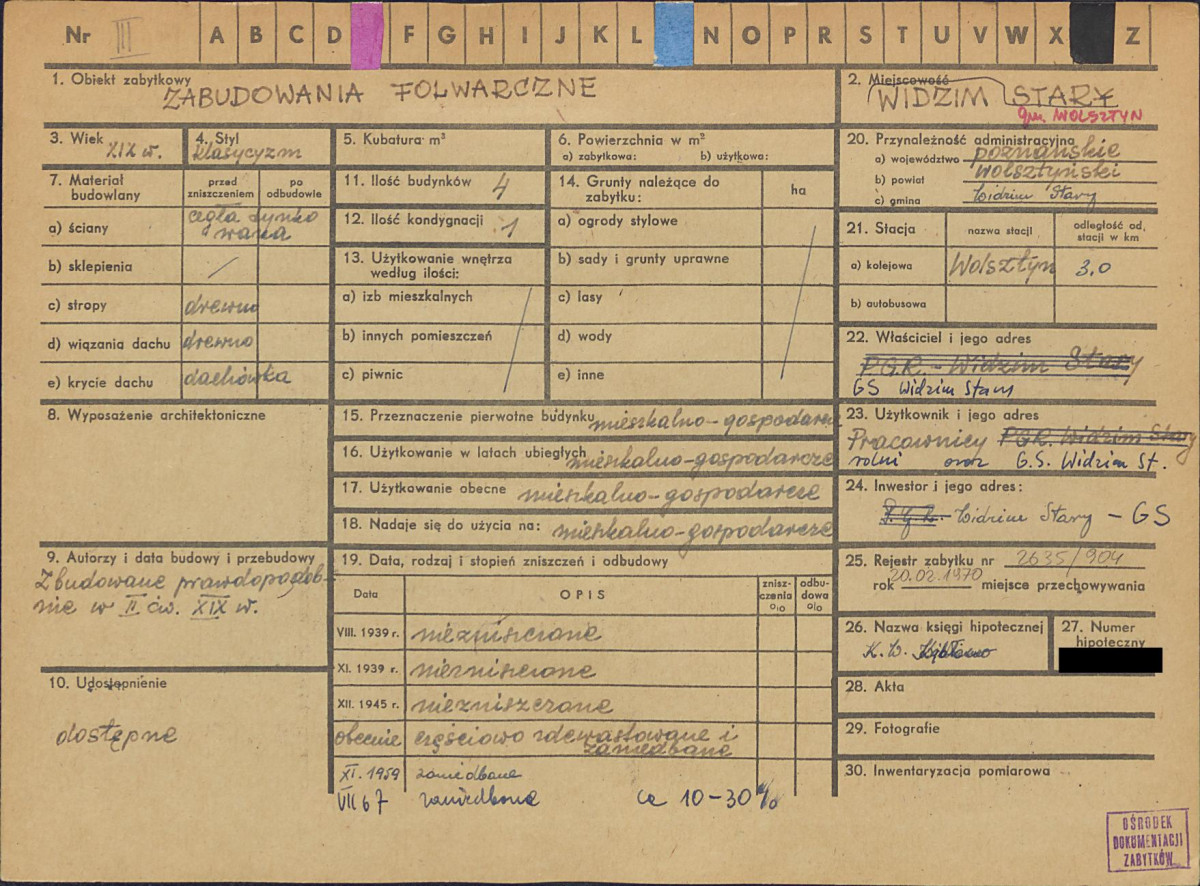 Nr III A B C D F G H I J K L N O P R S T U V W X Z
1. Obiekt zabytkowy
ZABUDOWANIA FOLWARCZNE
2. Miejscowość
WIDZIM STARY
gm. WOLSZTYN
3. Wiek
XIX w.
4. Styl
klasycyzm
5. Kubatura m³
6. Powierzchnia w m²
a) zabytkowa: b) użytkowa:
7. Materiał budowlany
przed zniszczeniem
po odbudowie
a) ściany
cegła tynko
wana
b) sklepienia /
c) stropy drewno
d) wiązania dachu drewno
e) krycie dachu dachówka
8. Wyposażenie architektoniczne
9. Autorzy i data budowy i przebudowy
Zbudowane prawdopodob-
nie w II ćw. XIX w.
10. Udostępnienie
dostępne
11. Ilość budynków 4
12. Ilość kondygnacji 1
13. Użytkowanie wnętrza
według ilości:
a) izb mieszkalnych
b) innych pomieszczeń
c) piwnic
14. Grunty należące do
zabytku:
ha
a) ogrody stylowe
b) sady i grunty uprawne
c) lasy
d) wody
e) inne
15. Przeznaczenie pierwotne budynku mieszkalno-gospodarcze
16. Użytkowanie w latach ubiegłych mieszkalno-gospodarcze
17. Użytkowanie obecne mieszkalno-gospodarcze
18. Nadaje się do użycia na: mieszkalno-gospodarcze
19. Data, rodzaj i stopień zniszczeń i odbudowy
Data
OPIS
znisz-
czenia
%
odbu-
dowa
%
VIII. 1939 r. niezniszczone
XI. 1939 r. niezniszczone
XII. 1945 r. niezniszczone
obecnie częściowo zdewastowane i
zaniedbane
XI. 1959 zaniedbane
VII 67 zaniedbane ca 10-30%
20. Przynależność administracyjna
a) województwo poznańskie
b) powiat wolsztyński
c) gmina Widzim Stary
21. Stacja
nazwa stacji
odległość od,
stacji w km
a) kolejowa Wolsztyn 3.0
b) autobusowa
22. Właściciel i jego adres
P.G.R. - Widzim Stary
GS Widzim Stary
23. Użytkownik i jego adres
Pracownicy P.G.R. Widzim Stary
rolni oraz G.S. Widzim St.
24. Inwestor i jego adres:
P.G.R. Widzim Stary - GS
25. Rejestr zabytku nr 2635/904
rok 20.02.1970 miejsce przechowywania
26. Nazwa księgi hipotecznej
K.W.
27. Numer
hipoteczny
28. Akta
29. Fotografie
30. Inwentaryzacja pomiarowa
OŚRODEK
DOKUMENTACJI
ZABYTKÓW